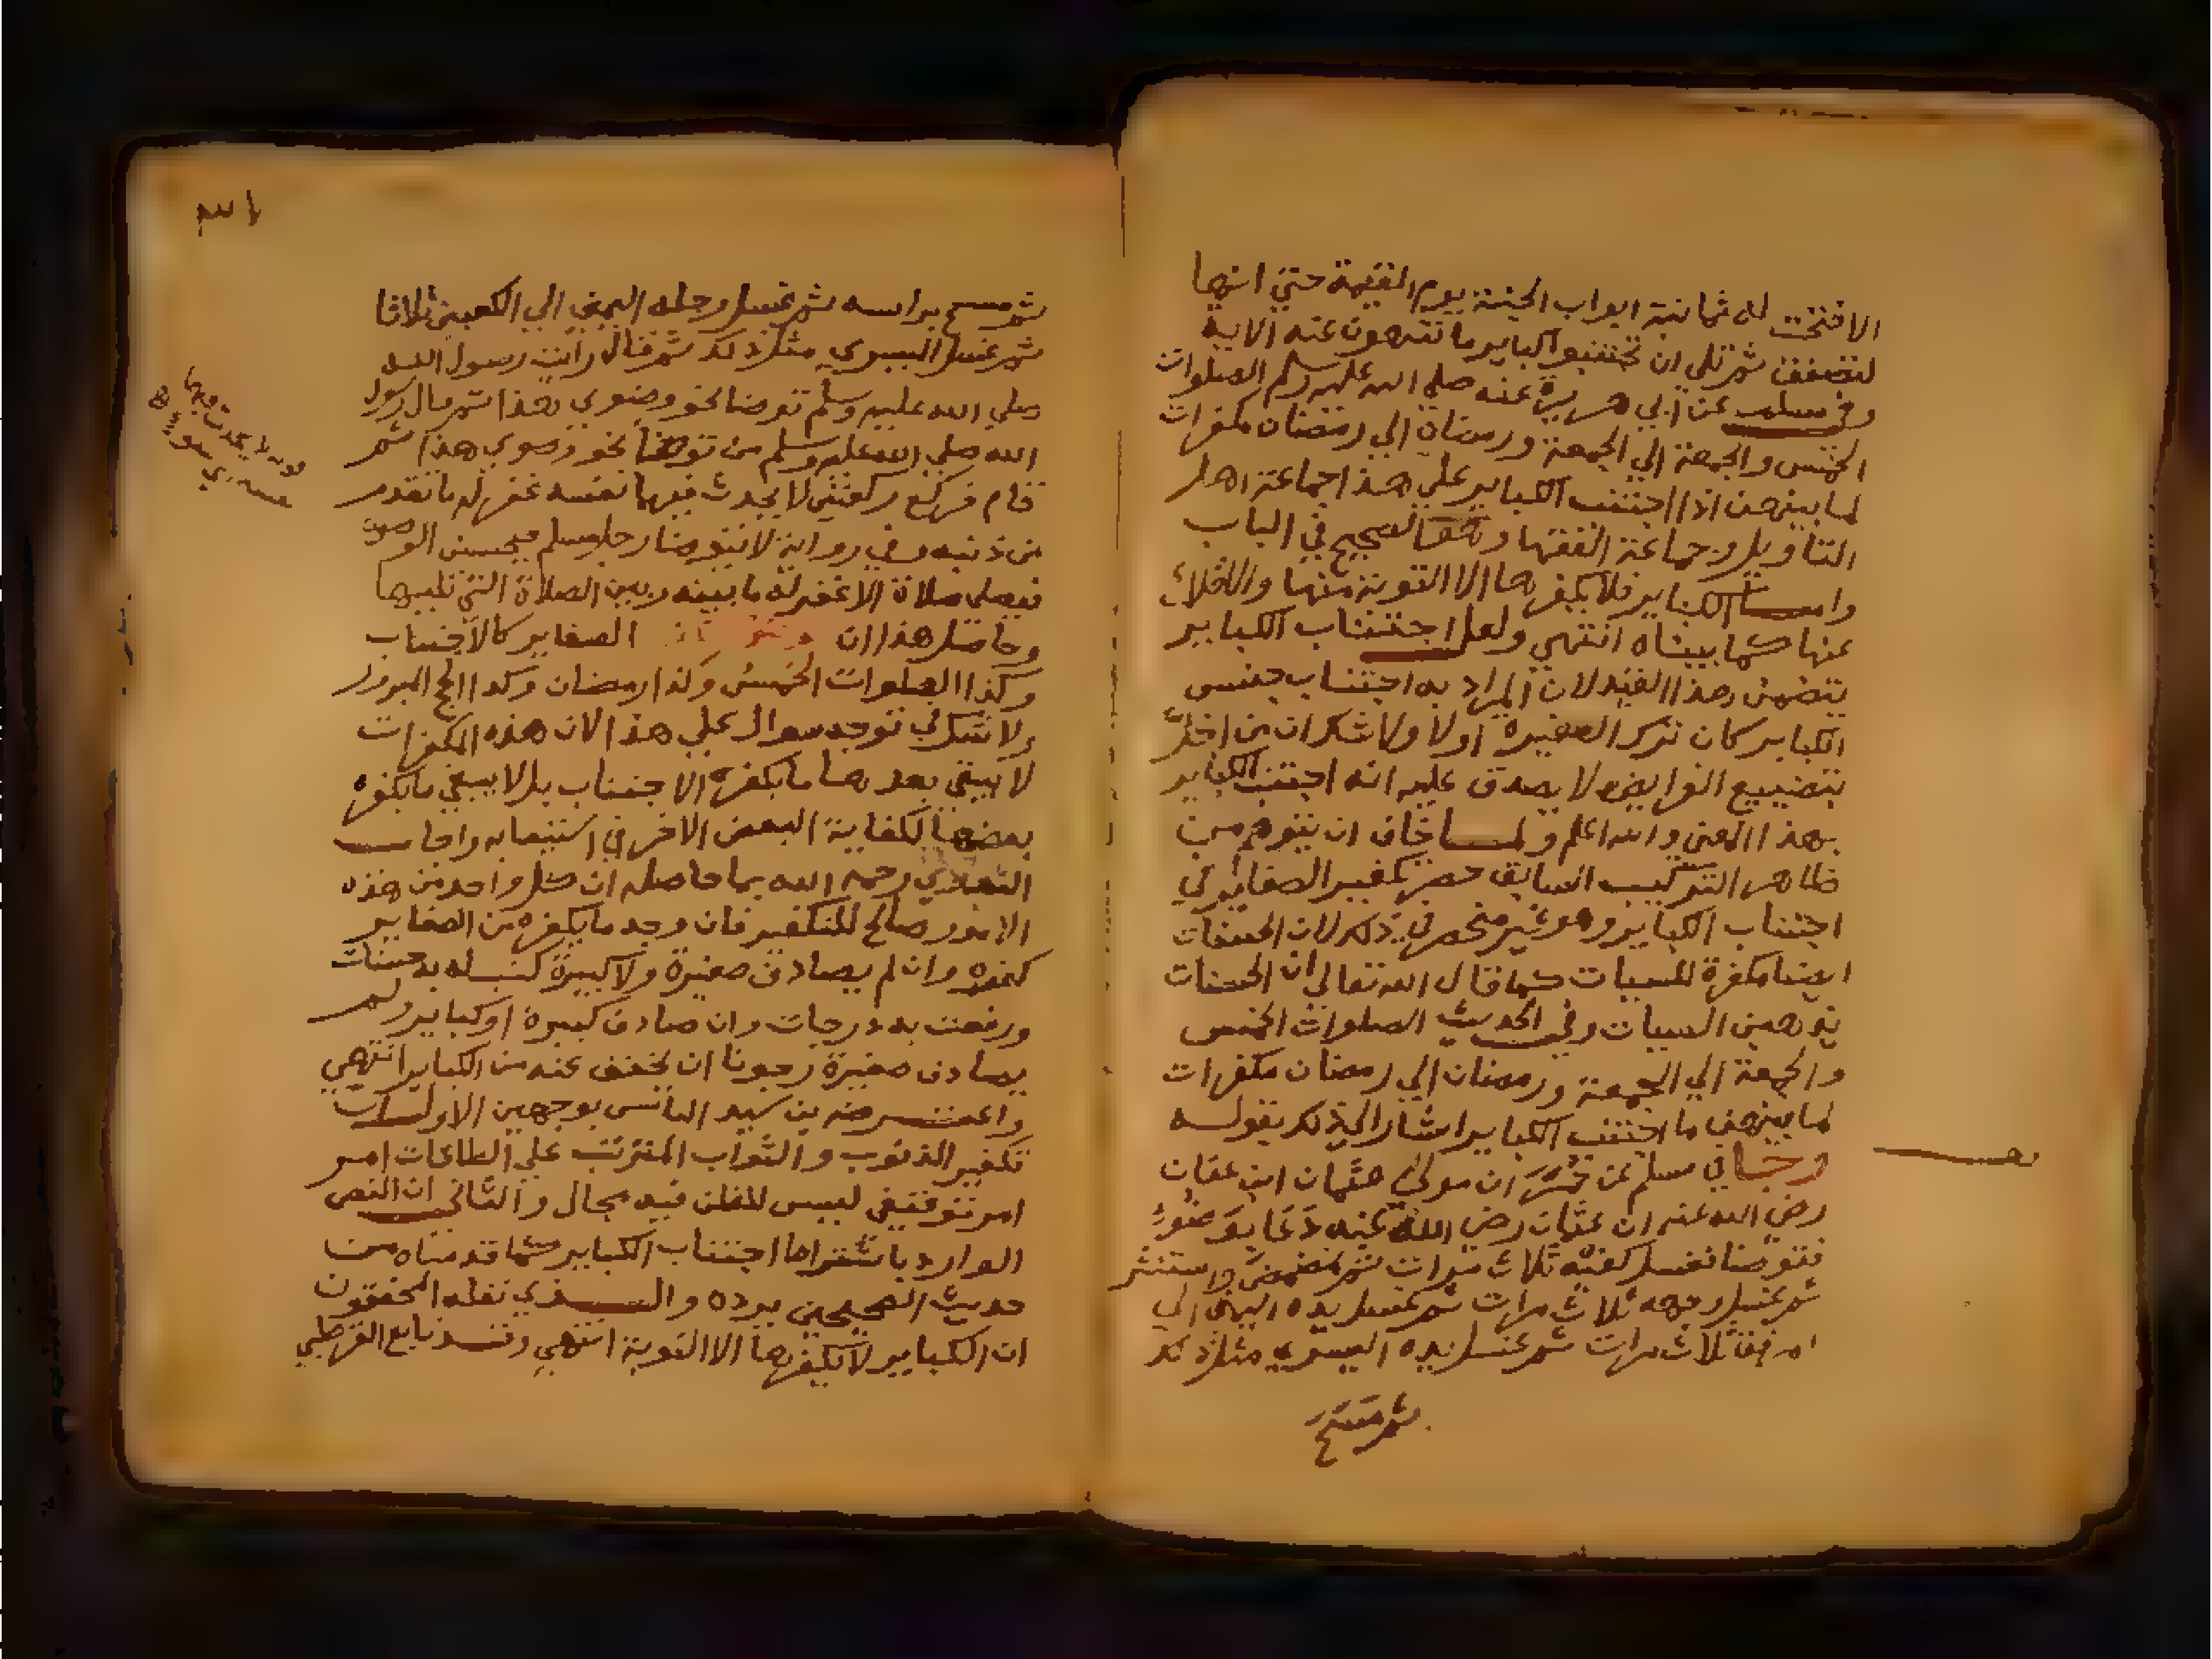 الا فتحت له ثمانية ابواب الجنة يوم القيمة حتي انها
لتصفق ثم تلي ان تجتنبوا كباير ما تنهون عنه الاية
وفي مسلم عن ابي هريرة عنه صلي الله عليه وسلم الصلوات
الخمس والجمعة الي الجمعة ورمضان الي رمضان مكفرات
لما بينهن اذا اجتنبت الكباير علي هذا جماعة اهل
التاويل وجماعة الفقها وهو الصحيح في الباب
واما الكباير فلا يكفرها الا التوبة منها والاقلاع
عنها كما بيناه انتهي ولعل اجتناب الكباير
يتضمن هذا القيد لان المراد به اجتناب جنس
الكباير كان ترك الصغيرة اولا ولا شك ان من اخل
بتضييع الفرايض لا يصدق عليه انه اجتنب الكباير
بهذا المعني والله اعلم ولما خاف ان يتوهم من
ظاهر التركيب السابق حصر تكفير الصغاير في
اجتناب الكباير وهو غير منحصر في ذلك لان الحسنات
ايضا مكفرة للسيات كما قال الله تعالي ان الحسنات
يذهبن السيات وفي الحديث الصلوات الخمس
والجمعة الي الجمعة ورمضان الي رمضان مكفرات
لما بينهن ما اجتنب الكباير اشار الي ذلك بقوله
وجا في مسلم عن حمران مولي عثمان ابن عفان
رضي الله عنه ان عثمان رضي الله عنه دعا بوضوء
فتوضا فغسل كفيه ثلاث مرات ثم تمضمض واستنثر
ثم غسل وجهه ثلاث مرات ثم غسل يده اليمني الي
المرفق ثلاث مرات ثم غسل يده اليسري مثل ذلك
ثم مسح
٣١
ثم مسح براسه ثم غسل رجله اليمني الي الكعبين ثلاثا
ثم غسل اليسري مثل ذلك ثم قال رايت رسول الله
صلي الله عليه وسلم توضا نحو وضوي هذا ثم قال رسول
الله صلي الله عليه وسلم من توضا نحو وضوي هذا ثم
قام فركع ركعتين لا يحدث فيهما نفسه غفر له ما تقدم
من ذنبه وفي رواية لا يتوضا رجل مسلم فيحسن الوضوء
فيصلي صلاة الا غفر له ما بينه وبين الصلاة التي تليها
وحاصل هذا ان الصغاير كالاجتناب
وكذا الصلوات الخمس وكذا رمضان وكذا الحج المبرور
ولا شك في توجه سوال علي هذا لان هذه المكفرات
لا يبقي بعدها ما يكفره الاجتناب بل لا يبقي ما يكفره
بعضها لكفاية البعض الاخر في استيعابه واجاب
رحمه الله بما حاصله ان كل واحد من هذه
الامور صالح للتكفير فان وجد ما يكفره من الصغاير
كفره وان لم يصادف صغيرة ولا كبيرة كتب له به حسنات
ورفعت به درجات وان صادف كبيرة او كباير ولم
يصادف صغيرة رجونا ان يخفف عنه من الكباير انتهي
واعترضه بن سيد الناس بوجهين الاول ان
تكفير الذنوب والثواب المترتب علي الطاعات امر
امر توقيفي ليس للظن فيه مجال والثاني ان النص
الوارد باشتراط اجتناب الكباير كما قدمناه من
حديث الصحيحين يرده والذي نقله المحققون
ان الكباير لا تكفرها الا التوبة انتهي وقد تابع القرطبي